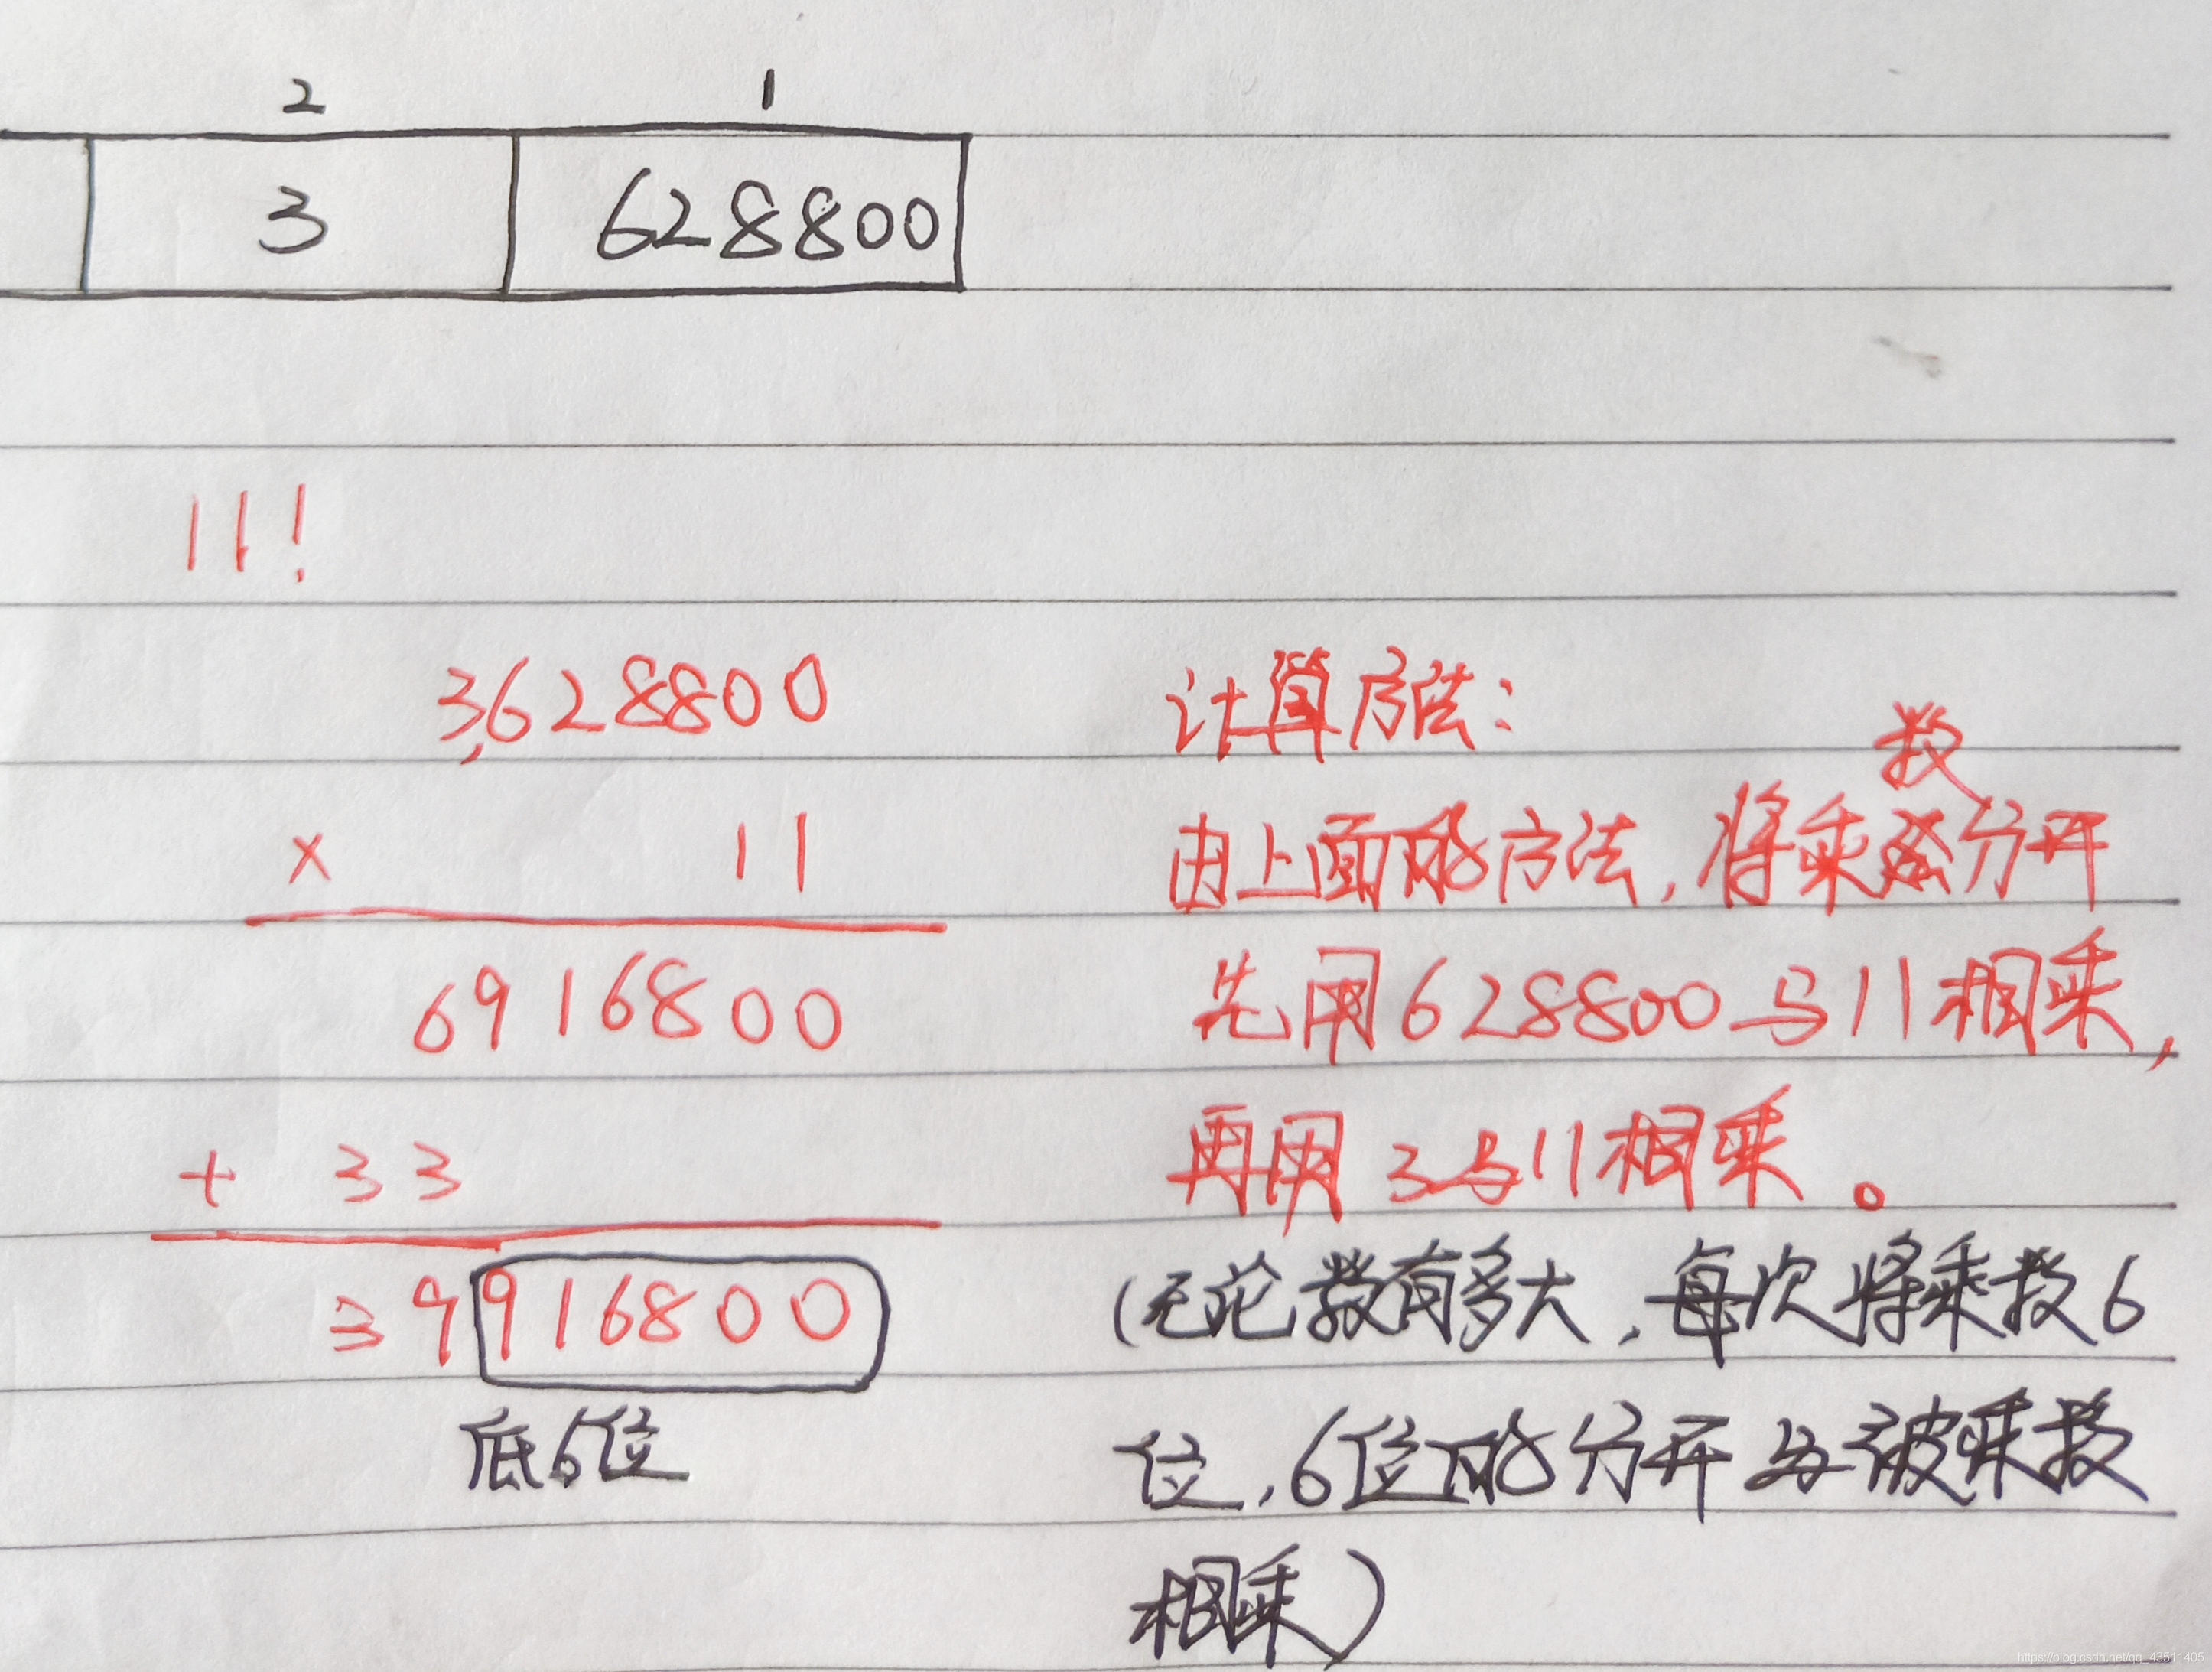 2 1
3 628800
11!
3,628800
× 11
6916800
+ 33
39916800
低6位
计算方法:
数
由上面的方法,将乘分开
先用628800与11相乘,
再用3与11相乘。
(无论数有多大,每次将乘数6
位,6位的分开与被乘数
相乘)
https://blog.csdn.net/qq_43511405